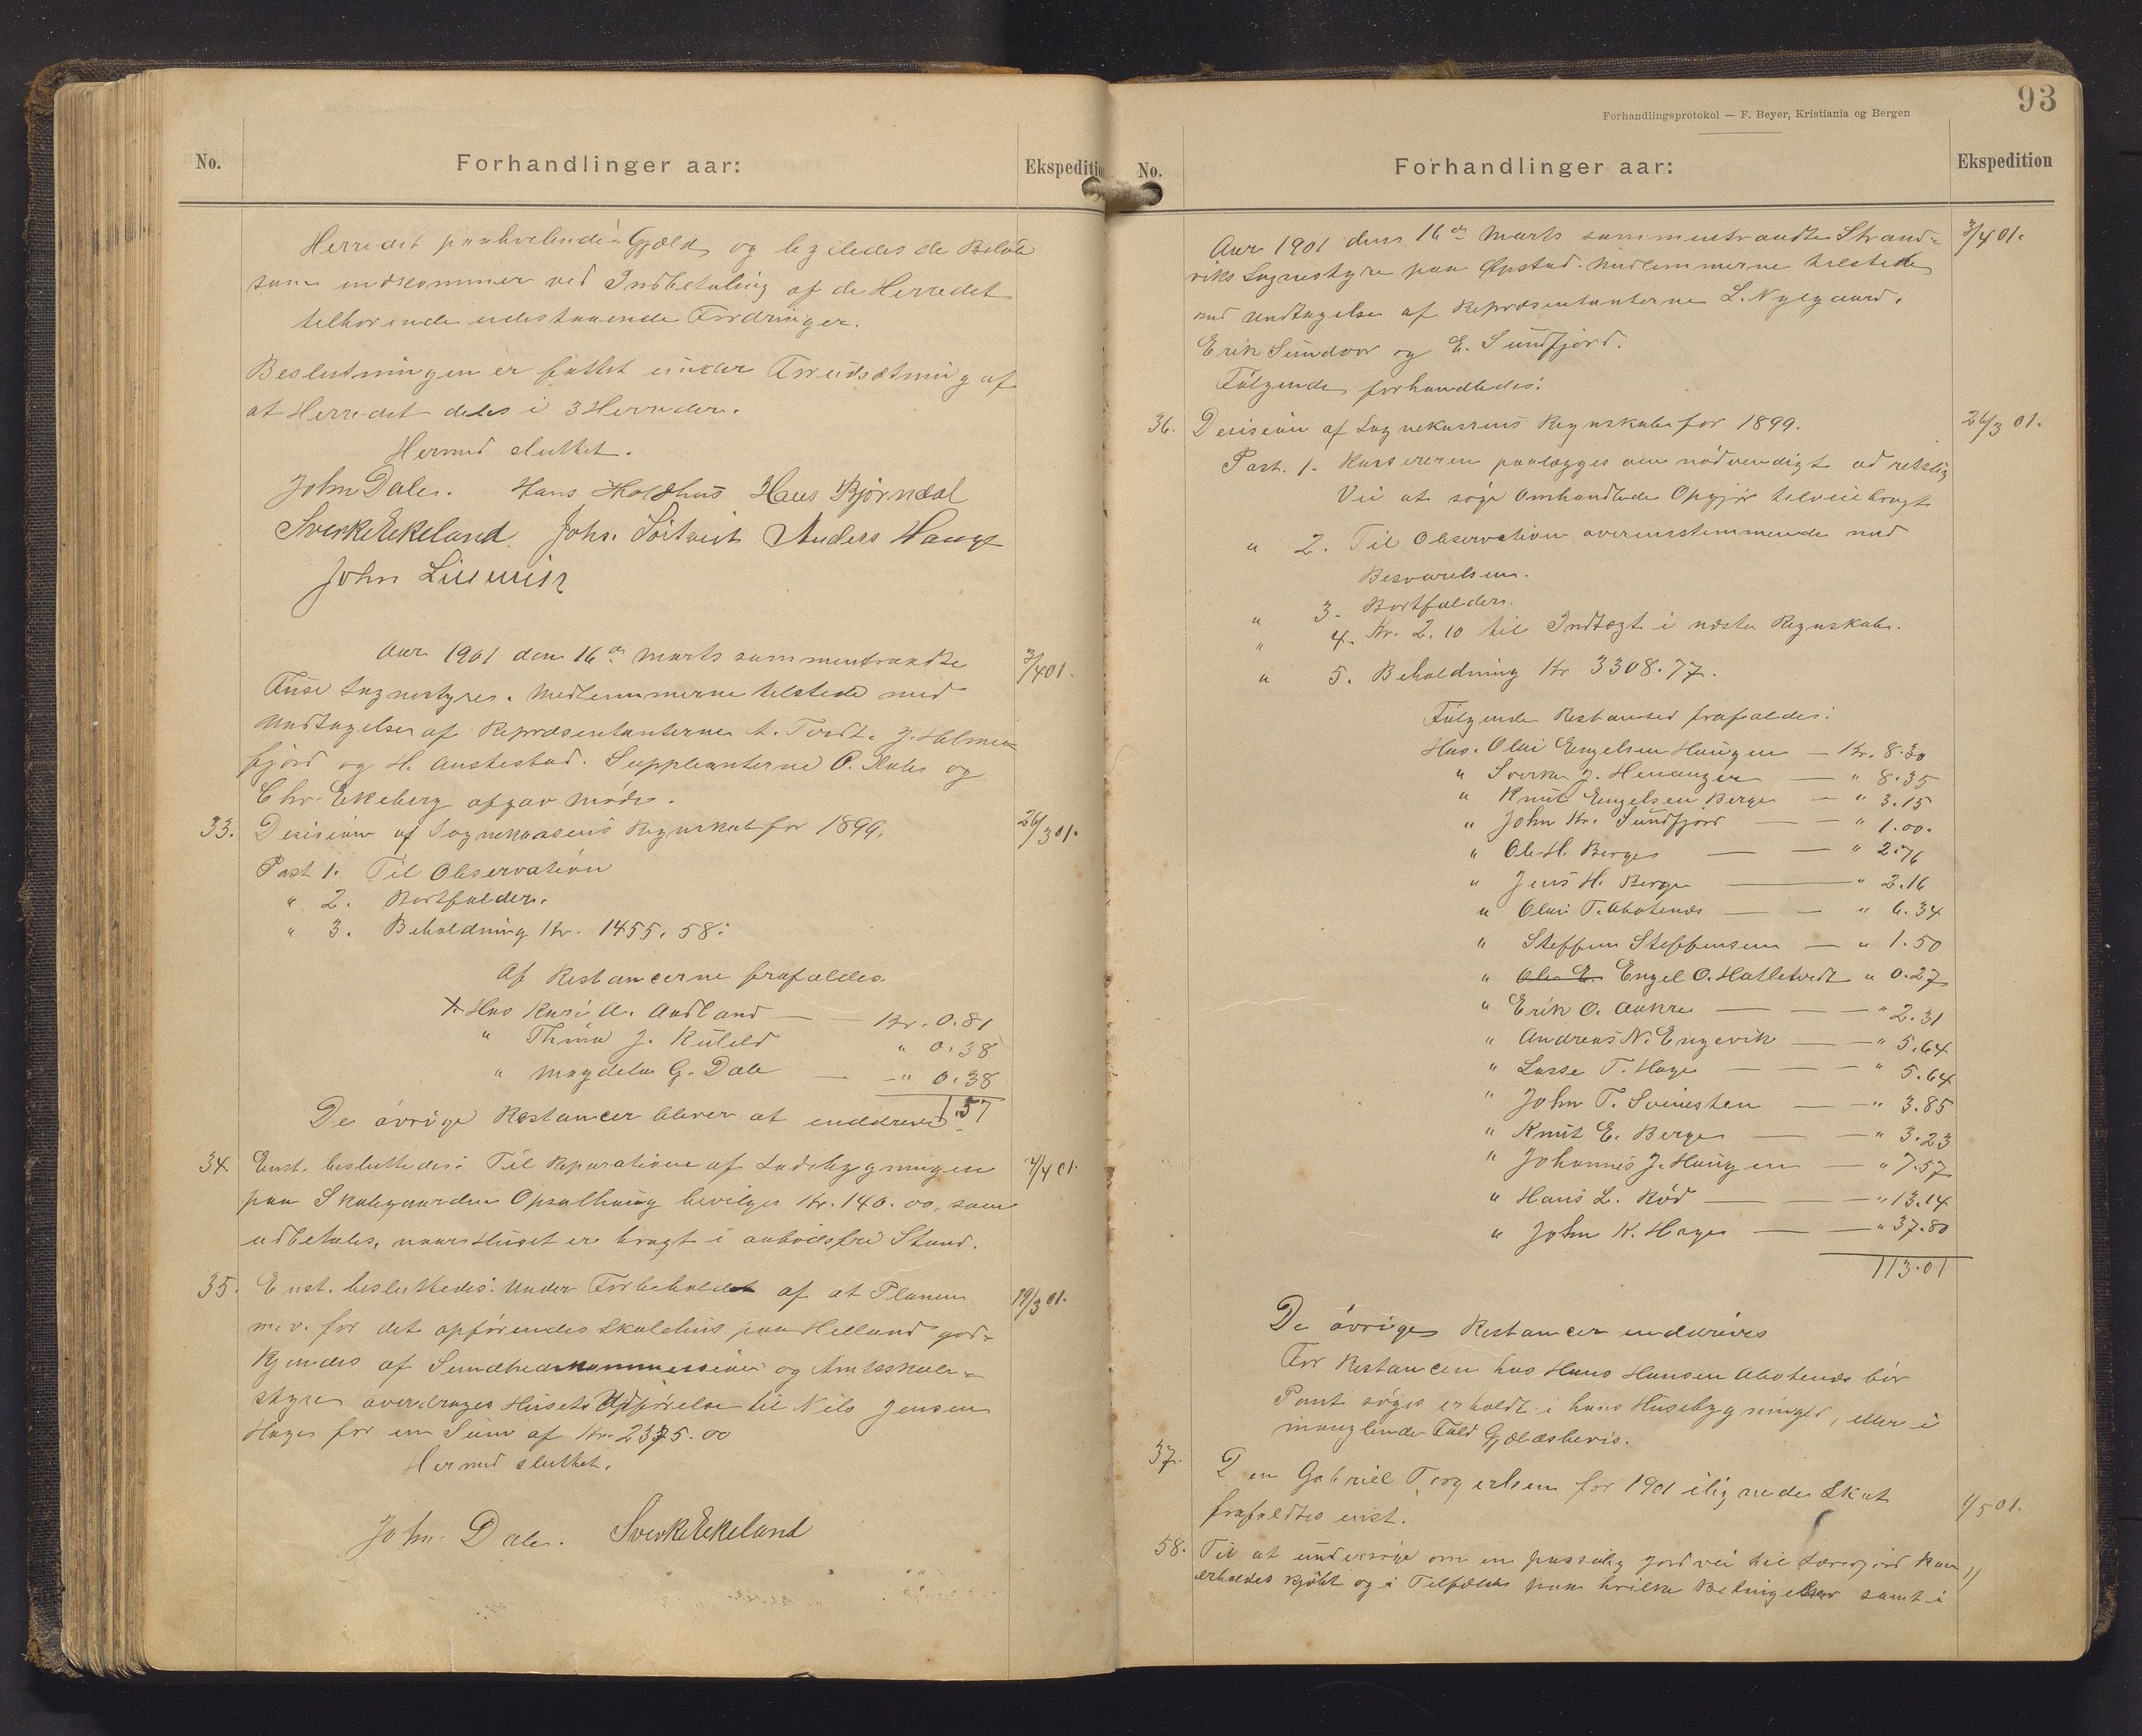 No.
Forhandlinger aar:
Ekspedition
Herredet paahvilende Gjæld og ligeledes de Beløb
som indkommer ved Indbetaling af de Herredet
tilhørende udestaaende Fordringer.
Beslutningen er fattet under Forudsætning af
at Herredet deles i 3 Herreder.
Hermed sluttet.
John Dale. Hans Holdhus Hans Bjørndal
Sverke Eekeland. Johs. Anders Hauge
John
Aar 1901 den 16de Marts sammentraadte
3/4 01.
Fuse Sognestyre. Medlemmerne tilstede med
Undtagelse af Repræsentanterne A. Tvedt. J. Holme-
fjord og H. Austestad. Suppleanterne O. og
Chr. Ekeberg afgav Møde.
33. Decision af Sognekassens Regnskab for 1899.
26/3 01.
Post 1. Til Observation
" 2. Bortfalder.
" 3. Beholdning Kr. 1455.58.
Af Restancerne frafaldes
Hos Kari A. Audland — Kr. 0.81
" Thina J. " 0.38
" Magdela G. Dale — " 0.38
1.57
De øvrige Restancer bliver at inddrive.
34. Enst. besluttedes: Til Reparation af Ladebygningen
2/4 01.
paa Skolegaarden Opsalhaug bevilges Kr. 140.00, som
udbetales, naar Huset er bragt i anbudsfri Stand.
35. Enst. besluttedes: Under Forbehold af at Planen
19/3 01.
m.v. for det opførendes Skolehus paa Helland god-
kjendes af Sundhedskommissionen og Amtsskole-
styret overdrages Husets Opførelse til Nils Jensen
Hage for en Sum af Kr. 2375.00
Hermed sluttet.
John Dale. Sverke Eekeland
93
Forhandlingsprotokol — F. Beyer, Kristiania og Bergen
No.
Forhandlinger aar:
Ekspedition
Aar 1901 den 16de Marts sammentraadte Strand-
3/4 01.
viks Sognestyre paa Opstad. Medlemmerne tilstede
med Undtagelse af Repræsentanterne L. Nygaard,
Erik Sundvor og E. Sundfjord.
Følgende forhandledes:
36. Decision af Sognekassens Regnskab for 1899.
26/3 01.
Post. 1. Kassereren paalægges om nødvendigt ad retslig
Vei at søge omhandlede Opgjør tilveiebragt
" 2. Til Observation overensstemmende med
Besvarelsen.
" 3. Bortfalder.
" 4. Kr. 2.10 til Indtægt i næste Regnskab.
" 5. Beholdning Kr 3308.77.
Følgende Restancer frafaldes:
Hos. Olai Engelsen Haugen — Kr. 8.30
" Sverke J. Henanger — " 8.35
" Knut Engelsen Berge — " 3.15
" John Kr. Sundfjord — — " 1.00.
" Ole H. Berge — — " 2.76
" Jens H. Berge — " 2.16
" Olai T. Abotsnes — — " 6.34
" Steffen Steffensen — " 1.50
" Ole E. Engel O. Hatletvedt " 0.27
" Erik O. Aakre — — — " 2.31
" Andreas N. Engevik — — " 5.64
" Lasse T. Hage — — — " 5.64
" John T. Svinesten — — " 3.85
" Knut E. Berge — — " 3.23
" Johannes J. Haugen — — " 7.57
" Hans L. Rød — — — " 13.14
" John K. Hage — — " 37.80
113.01
De øvrige Restancer inddrives
For Restancen hos Hans Hansen Abotsnes bør
Pant søges erholdt i hans Husebygninger, eller i
manglende Fald Gjældsbevis.
37. Den Gabriel Torgerlsen for 1901 ilignede Skat
1/5 01.
frafaldtes enst.
58. Til at undersøge om en passelig Jordvei til kan
erholdes kjøbt og i Tilfælde paa hvilke Betingelser samt i